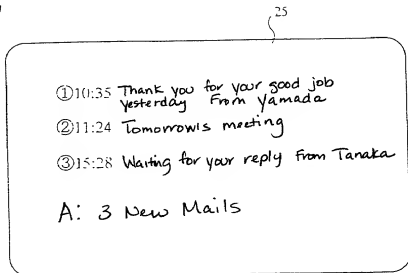 25
①10:35 Thank you for your good job
yesterday From Yamada
②11:24 Tomorrow's meeting
③15:28 Waiting for your reply From Tanaka
A: 3 New Mails